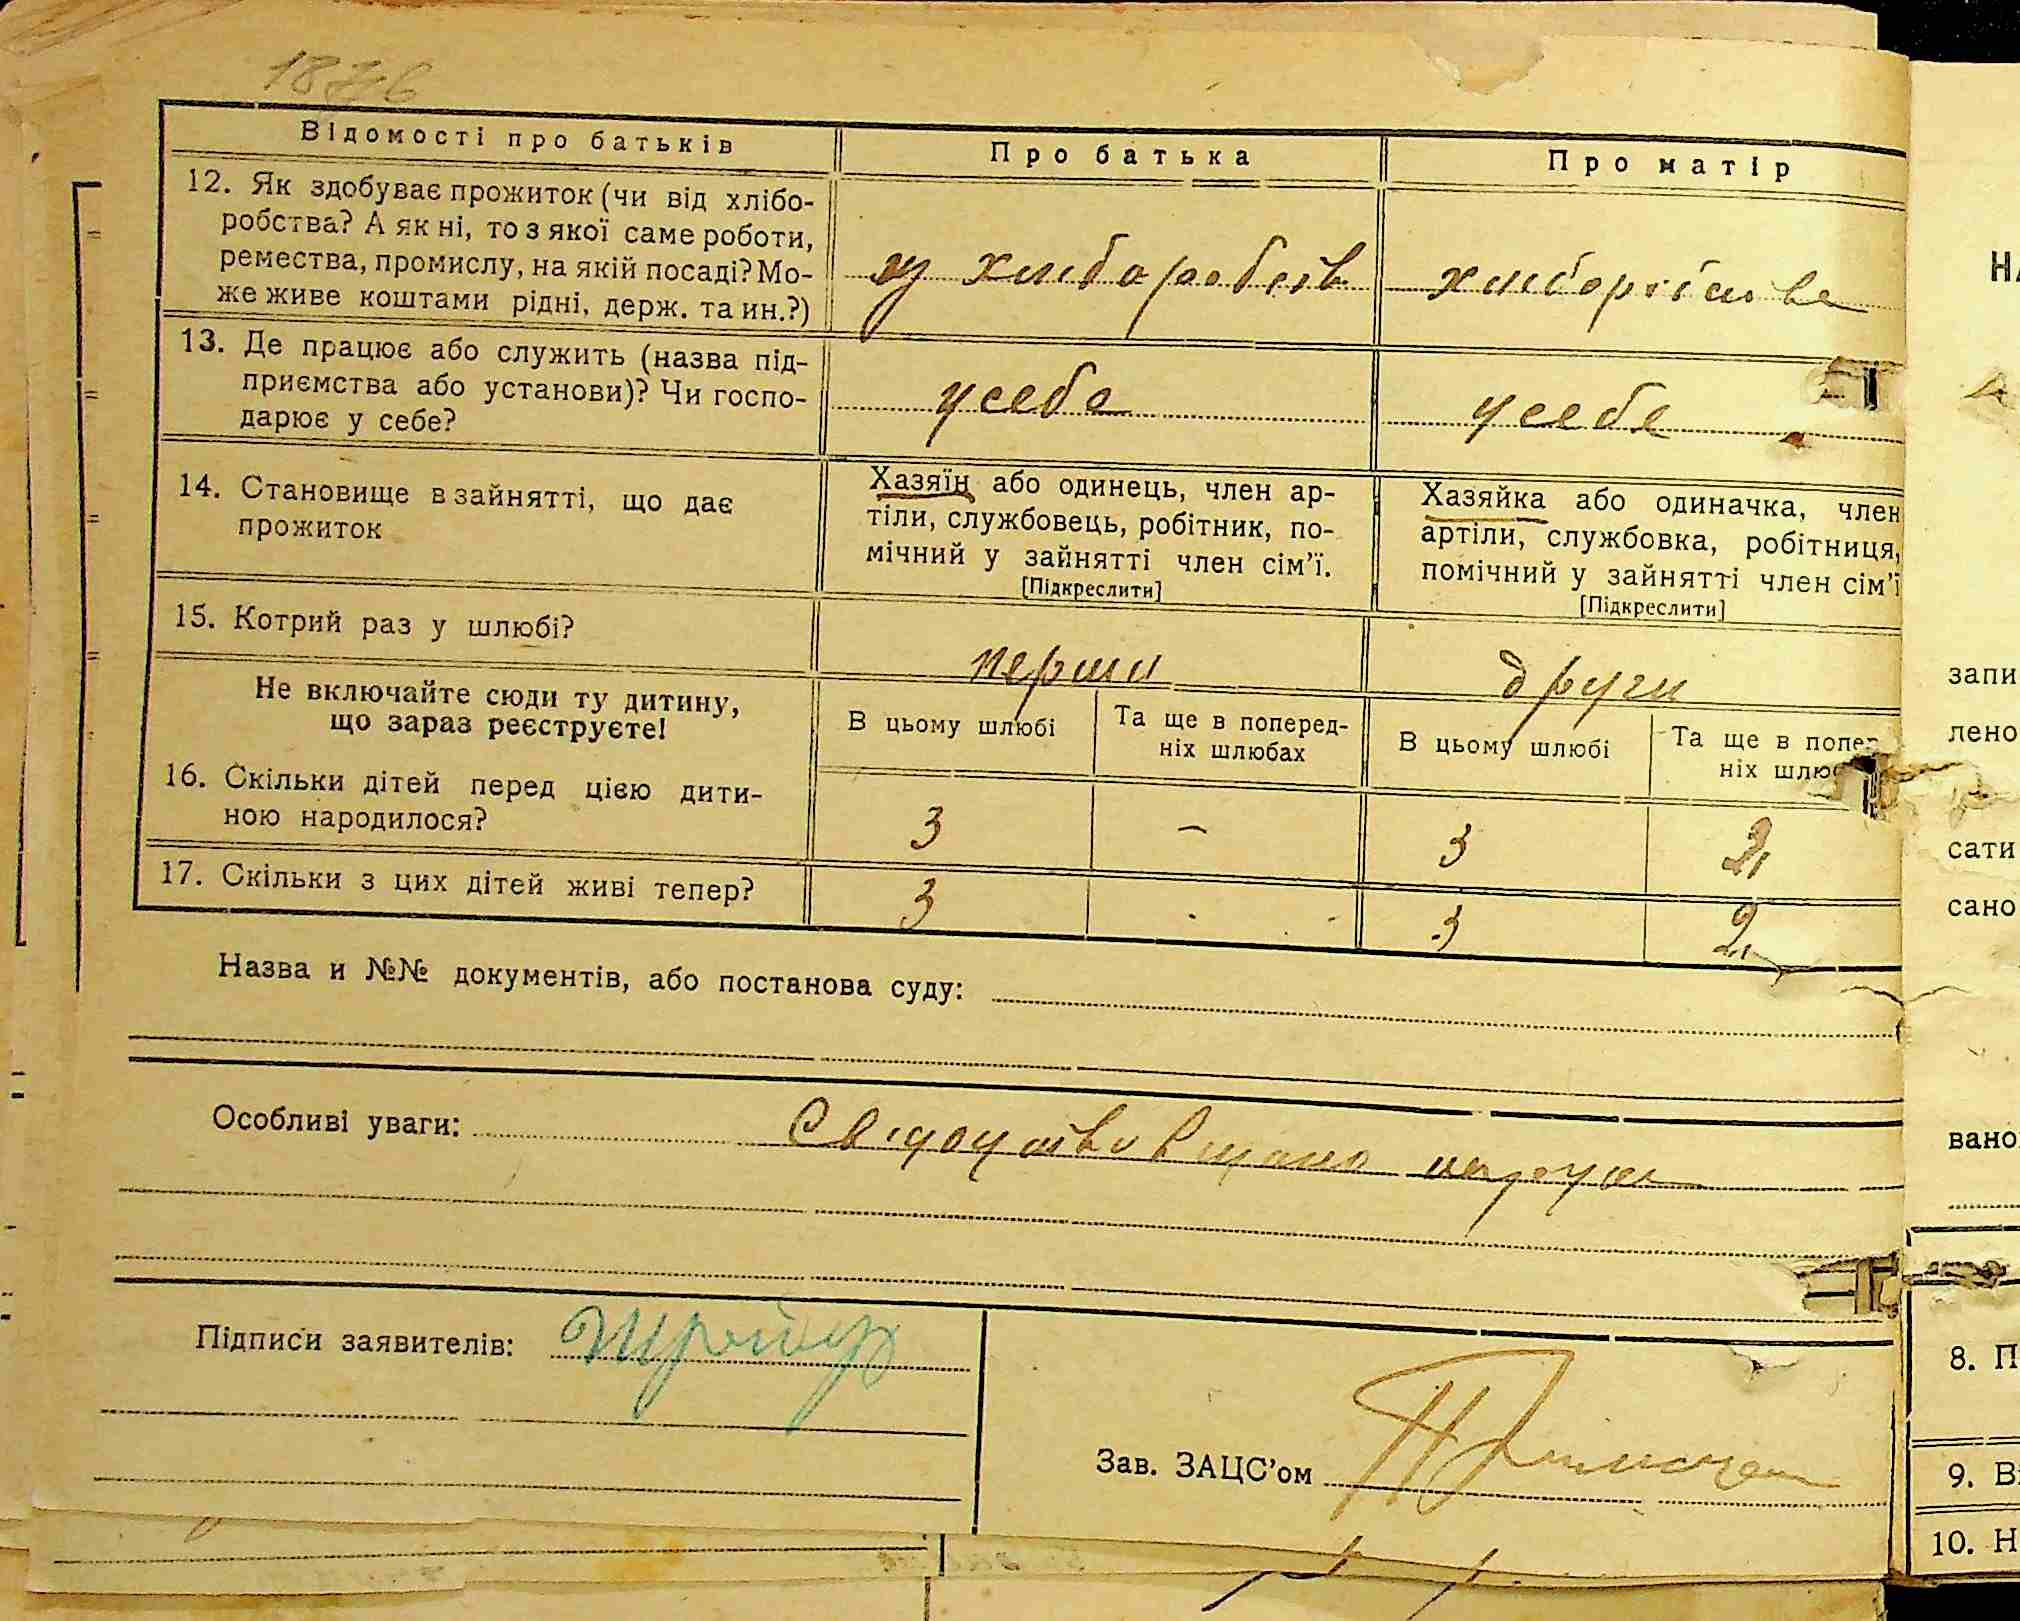 1876
Відомості про батьків
Про батька
Про матір
12. Як здобуває прожиток (чи від хлібо-
робства? А як ні, то з якої саме роботи,
ремества, промислу, на якій посаді? Мо-
же живе коштами рідні, держ. та ин.?)
13. Де працює або служить (назва під-
приємства або установи)? Чи госпо-
дарює у себе?
у себе
у себе
14. Становище в зайнятті, що дає
прожиток
Хазяїн або одинець, член ар-
тіли, службовець, робітник, по-
мічний у зайнятті член сім'ї.
[Підкреслити]
Хазяйка або одиначка, член
артіли, службовка, робітниця,
помічний у зайнятті член сім'ї
[Підкреслити]
15. Котрий раз у шлюбі?
перши
други
Не включайте сюди ту дитину,
що зараз реєструєте!
В цьому шлюбі
Та ще в поперед-
ніх шлюбах
В цьому шлюбі
Та ще в попер
ніх шлюб
16. Скільки дітей перед цією дити-
ною народилося?
3
–
3
2
17. Скільки з цих дітей живі тепер?
3
3
2
Назва и №№ документів, або постанова суду:
Особливі уваги:
Підписи заявителів:
Зав. ЗАЦС'ом
НА
запи
лено
сати
сано
вано
8. П
9. Ві
10. Н